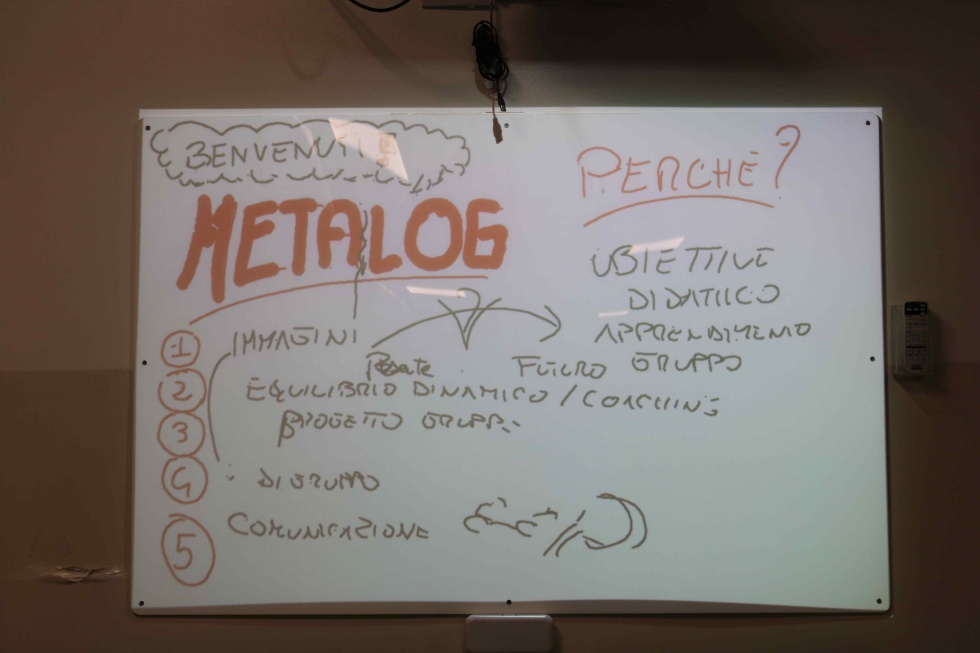 BENVENUTI
METALOG
PERCHÈ?
OBIETTIVI
DIDATTICO
APPRENDIMENTO
GRUPPO
1 IMMAGINI
FUTURO
2 EQUILIBRIO DINAMICO / COACHING
3 PROGETTO GRUPPO
4 DI GRUPPO
5 COMUNICAZIONE